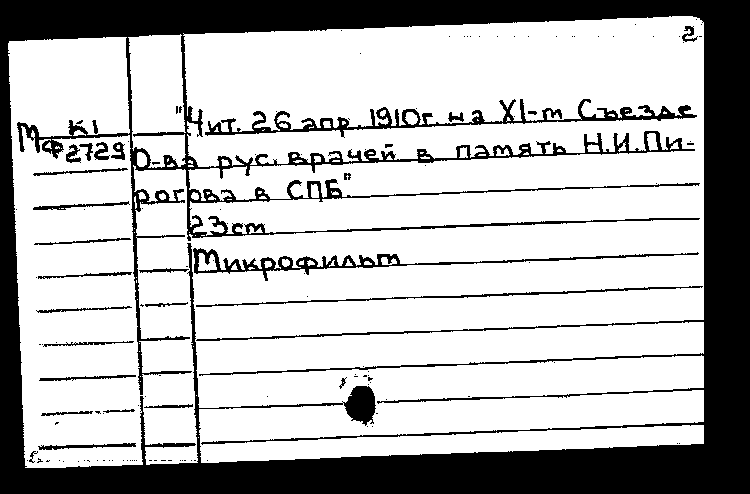 2
К1
Мф2729
"Чит. 26 апр. 1910г. на XI-м Съезде
О-ва рус. врачей в память Н.И.Пи-
рогова в СПБ".
23см.
Микрофильм